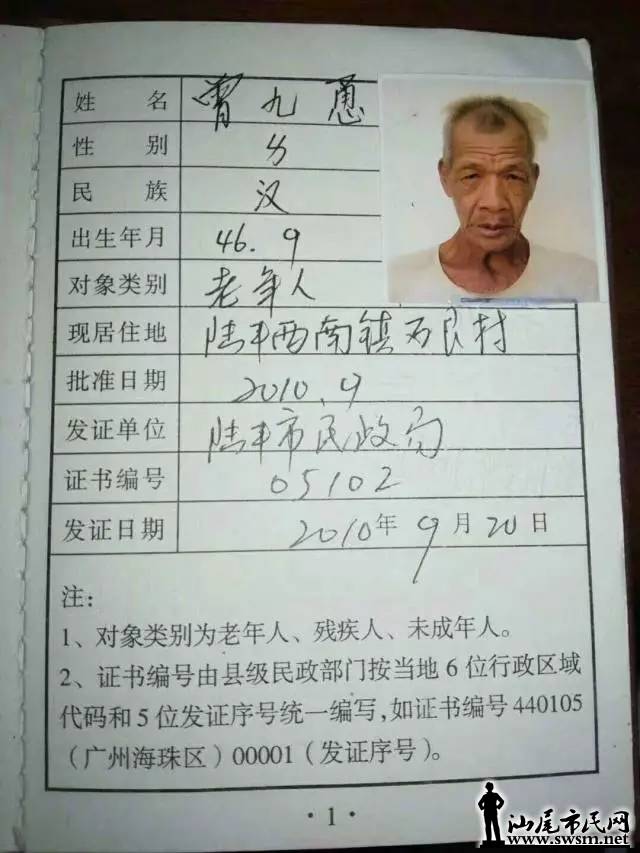 姓 名 曾九恿
性 别 男
民 族 汉
出生年月 46.9
对象类别 老年人
现居住地 陆丰西南镇石良村
批准日期 2010.9
发证单位 陆丰市民政局
证书编号 05102
发证日期 2010年9月20日
注:
1、对象类别为老年人、残疾人、未成年人。
2、证书编号由县级民政部门按当地6位行政区域
代码和5位发证序号统一编写,如证书编号440105
(广州海珠区)00001(发证序号)。
·1·
汕尾市民网
www.swsm.net